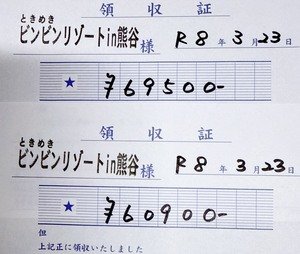 領収証
ときめき
ピンピンリゾートin熊谷様 R8年3月23日
★ ¥69500-
領収証
ときめき
ピンピンリゾートin熊谷様 R8年3月23日
★ ¥60900-
但
上記正に領収いたしました